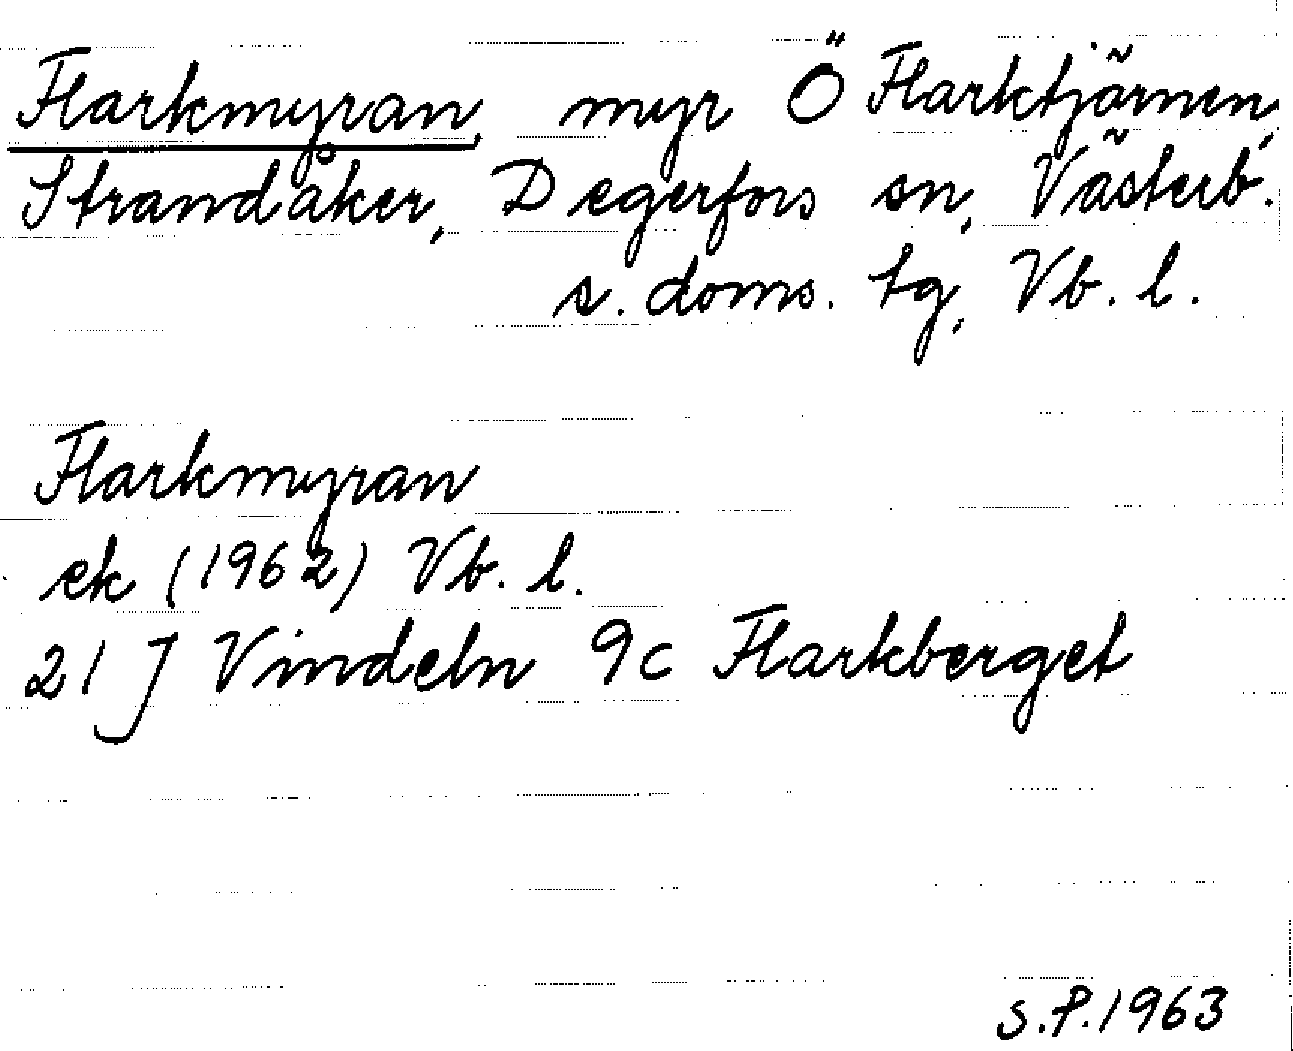 Flarkmyran, myr Ö Flarktjärnen,
Strandåker, Degerfors sn, Västerb.
s. doms. tg, Vb. l.
Flarkmyran
ek (1962) Vb. l.
21 J Vindeln 9c Flarkberget
S.P.1963